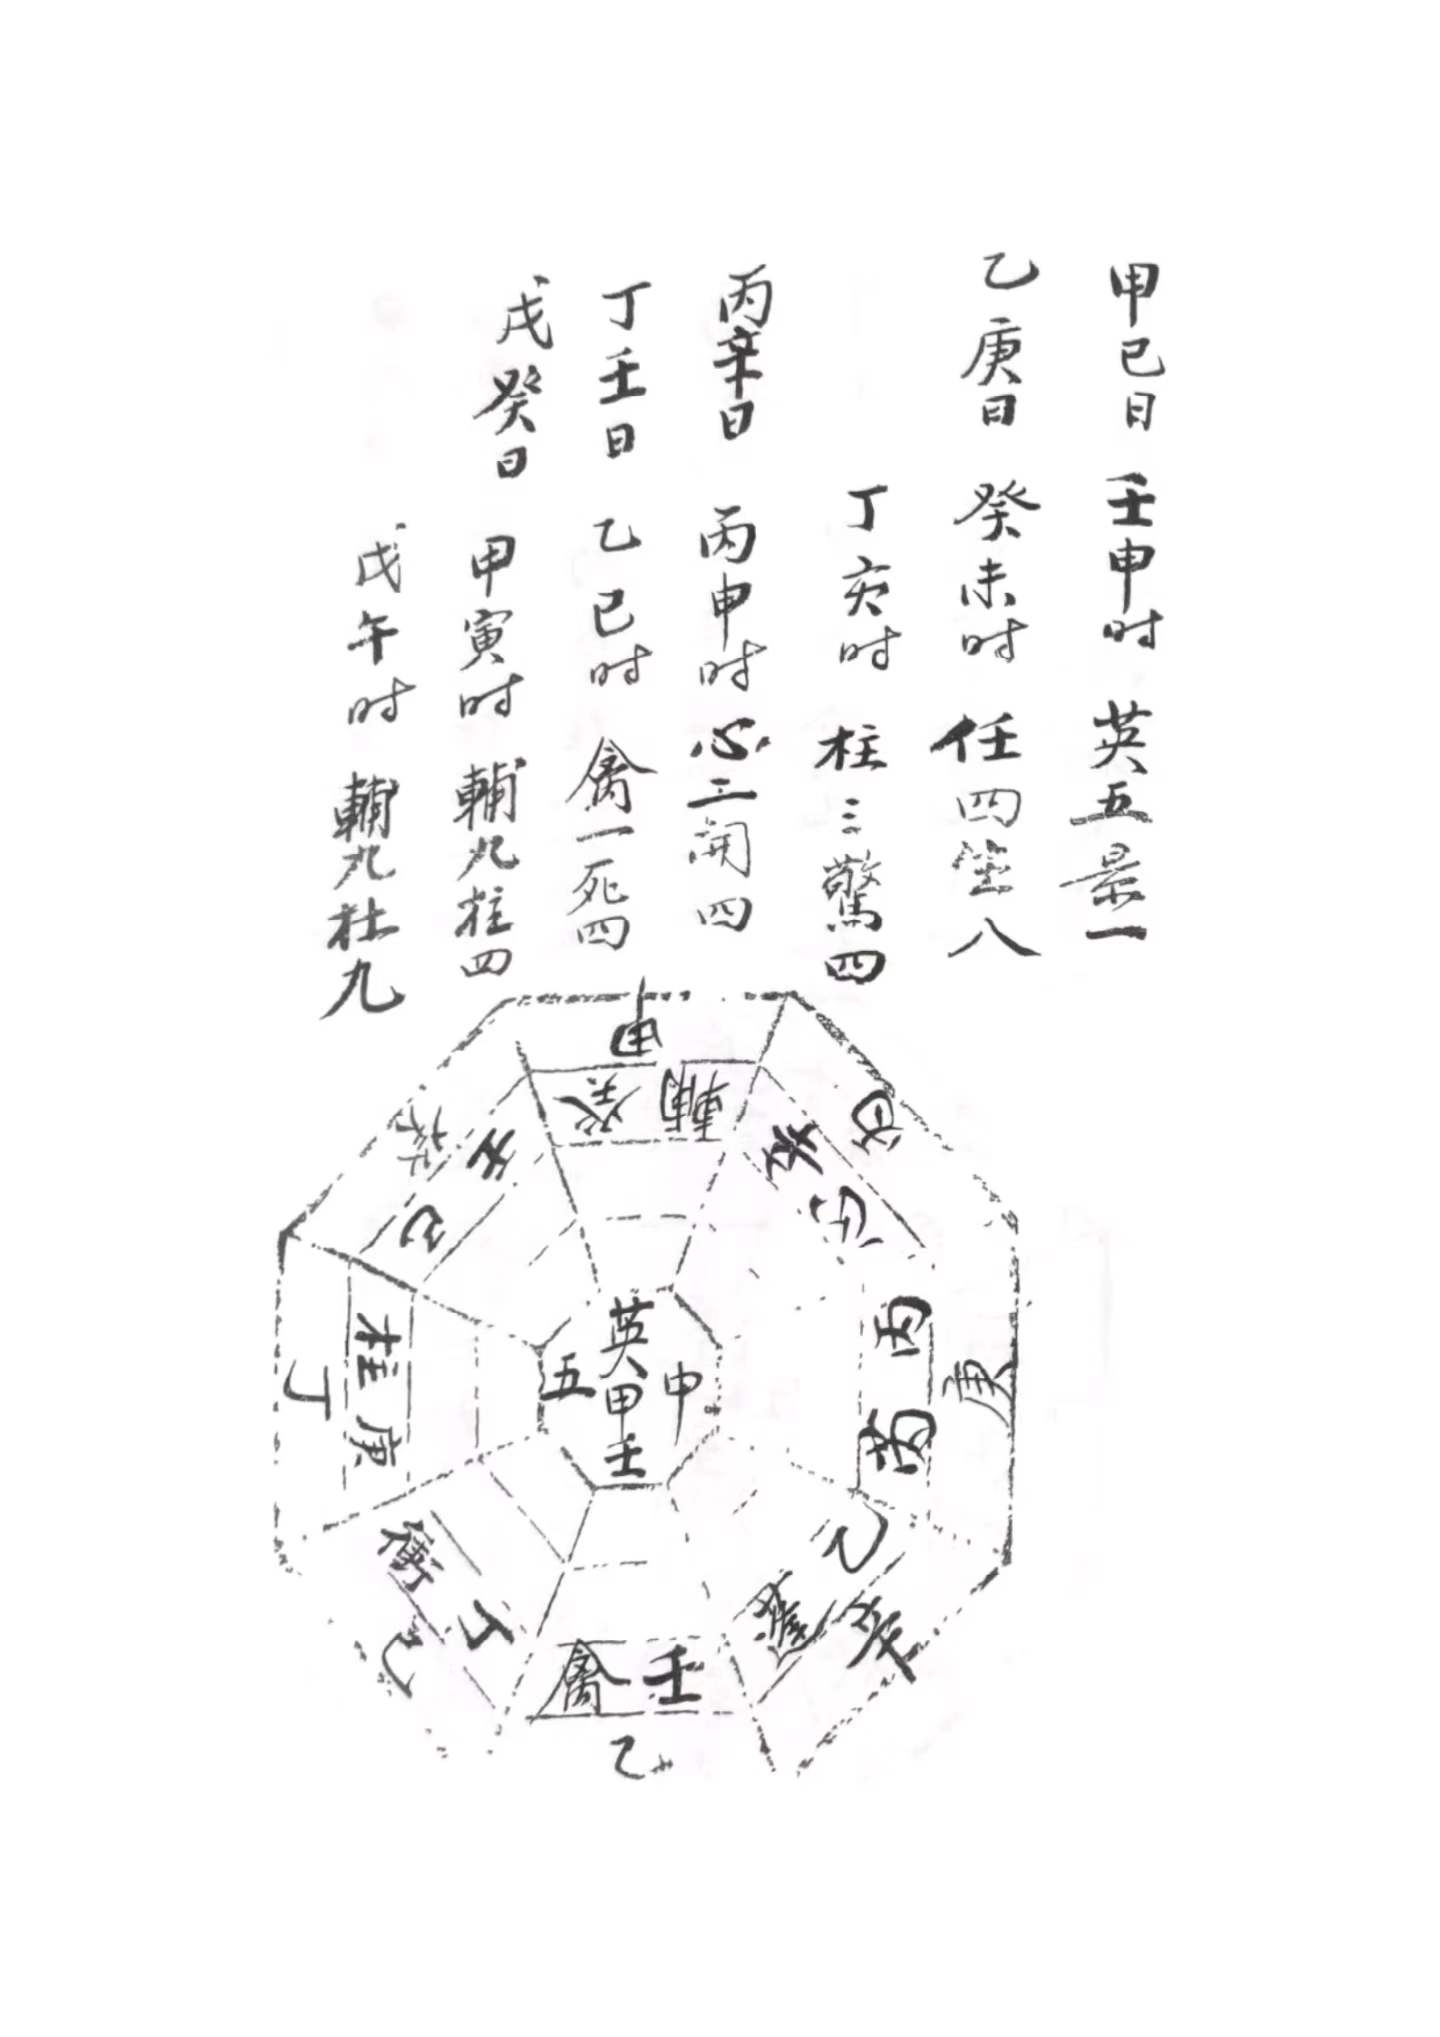 甲己日 壬申时 英五景一
乙庚日 癸未时 任四生八
丁亥时 柱三驚四
丙辛日 丙申时 心二開四
丁壬日 乙巳时 禽一死四
戊癸日 甲寅时 輔九柱四
戊午时 輔九杜九
甲
輔 癸
丙
庚
乙
辛
禽 壬
乙
衝 丁
己
柱 庚
丁
壬 己
英
五 甲 申
壬